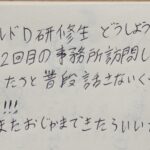 ルドD研修生 どうしよう
2回目の事務所訪問し
たのと普段話さないく
!!!
またおじゃまできたらいい